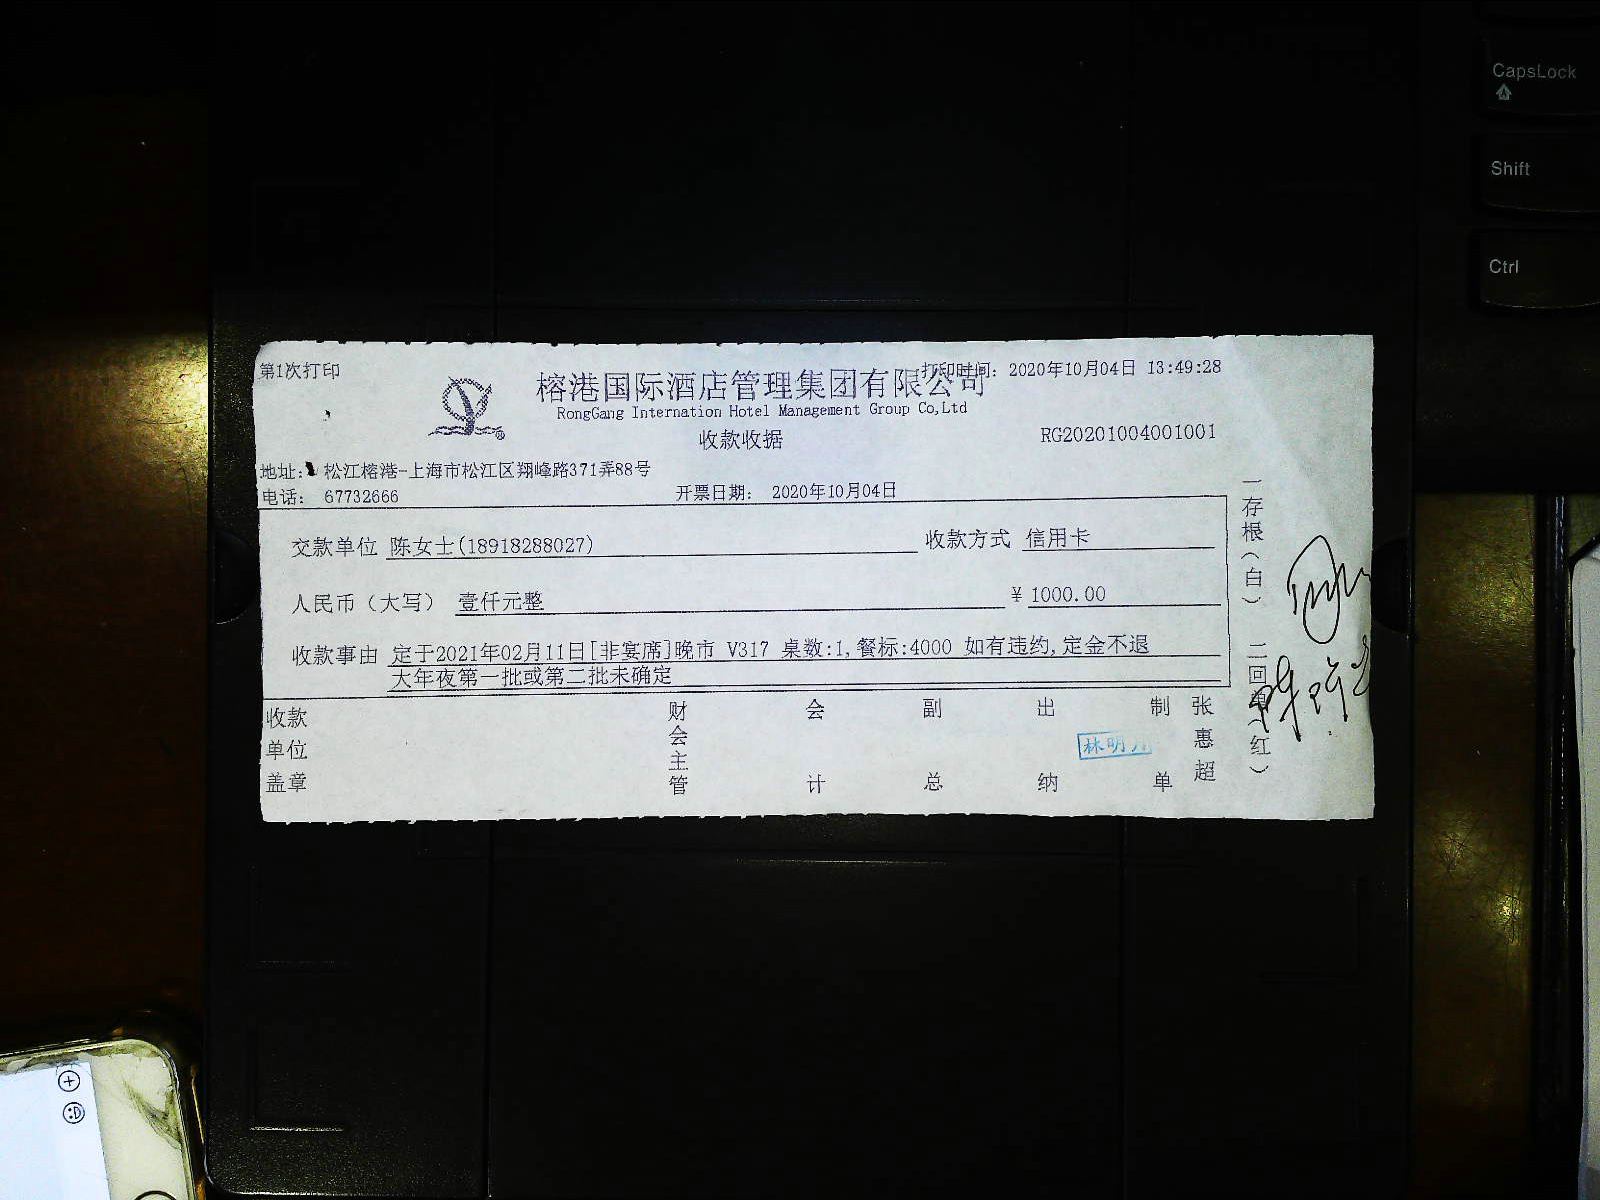 CapsLock
Shift
Ctrl
第1次打印
打印时间：2020年10月04日 13:49:28
榕港国际酒店管理集团有限公司
RongGang Internation Hotel Management Group Co,Ltd
收款收据
RG20201004001001
地址： 松江榕港-上海市松江区翔峰路371弄88号
电话： 67732666
开票日期： 2020年10月04日
交款单位 陈女士(18918288027)
收款方式 信用卡
人民币（大写） 壹仟元整
¥ 1000.00
收款事由 定于2021年02月11日[非宴席]晚市 V317 桌数:1,餐标:4000 如有违约,定金不退
大年夜第一批或第二批未确定
收款单位盖章
财会主管
会计
副总
出纳
林明
制单
张惠超
一存根（白）
二回单（红）